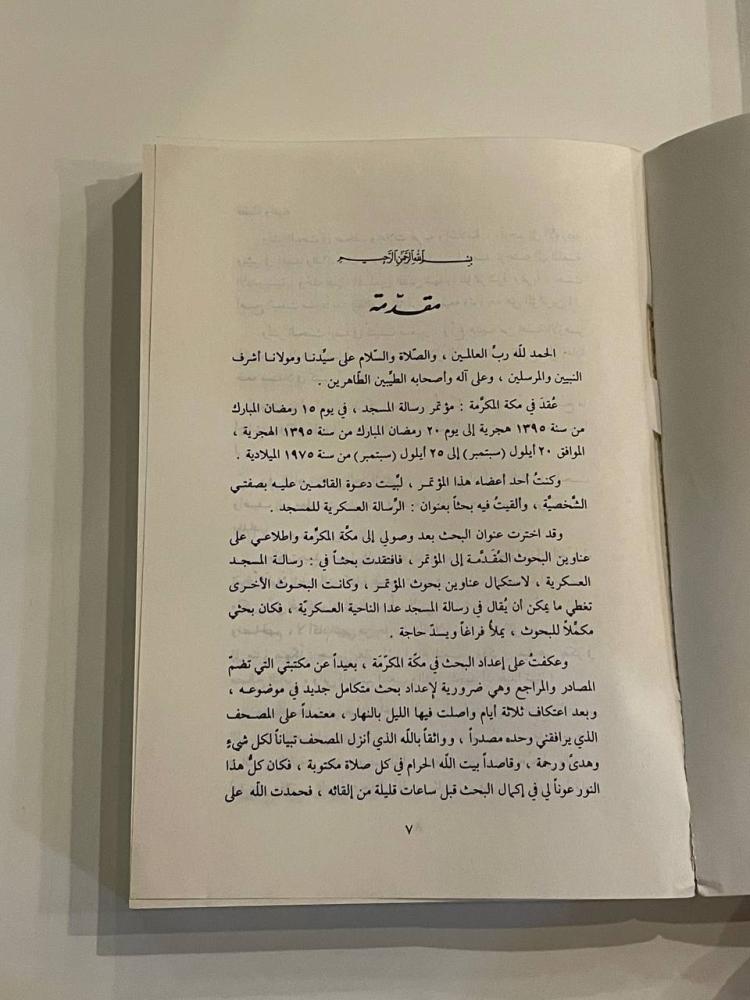 بسم الله الرحمن الرحيم
مقدّمة
الحمد لله ربِّ العالمين ، والصّلاة والسّلام على سيِّدنا ومولانا أشرف
النبيين والمرسلين ، وعلى آله وأصحابه الطيِّبين الطّاهرين .
عُقدَ في مكة المكرَّمة : مؤتمر رسالة المسجد ، في يوم ١٥ رمضان المبارك
من سنة ١٣٩٥ هجرية إلى يوم ٢٠ رمضان المبارك من سنة ١٣٩٥ الهجرية ،
الموافق ٢٠ أيلول (سبتمبر) إلى ٢٥ أيلول (سبتمبر) من سنة ١٩٧٥ الميلادية .
وكنتُ أحد أعضاء هذا المؤتمر ، لبَّيت دعوة القائمين عليه بصفتي
الشّخصيَّة ، وألقيتُ فيه بحثاً بعنوان : الرِّسالة العسكرية للمسجد .
وقد اخترت عنوان البحث بعد وصولي إلى مكّة المكرَّمة واطلاعي على
عناوين البحوث المُقدَّمة إلى المؤتمر ، فافتقدت بحثاً في : رسالة المسجد
العسكرية ، لاستكمال عناوين بحوث المؤتمر ، وكانت البحوث الأخرى
تغطي ما يمكن أن يُقال في رسالة المسجد عدا الناحية العسكريّة ، فكان بحثي
مكمِّلاً للبحوث ، يملأُ فراغاً ويسدّ حاجة .
وعكفتُ على إعداد البحث في مكّة المكرّمَة ، بعيداً عن مكتبتي التي تضمّ
المصادر والمراجع وهي ضرورية لإعداد بحث متكامل جديد في موضوعه ،
وبعد اعتكاف ثلاثة أيام واصلت فيها الليل بالنهار ، معتمداً على المصحف
الذي يرافقني وحده مصدراً ، وواثقاً بالله الذي أنزل المصحف تبياناً لكل شيءٍ
وهدىً ورحمة ، وقاصداً بيت الله الحرام في كل صلاة مكتوبة ، فكان كلُّ هذا
النور عوناً لي في إكمال البحث قبل ساعات قليلة من إلقائه ، فحمدت الله على
٧